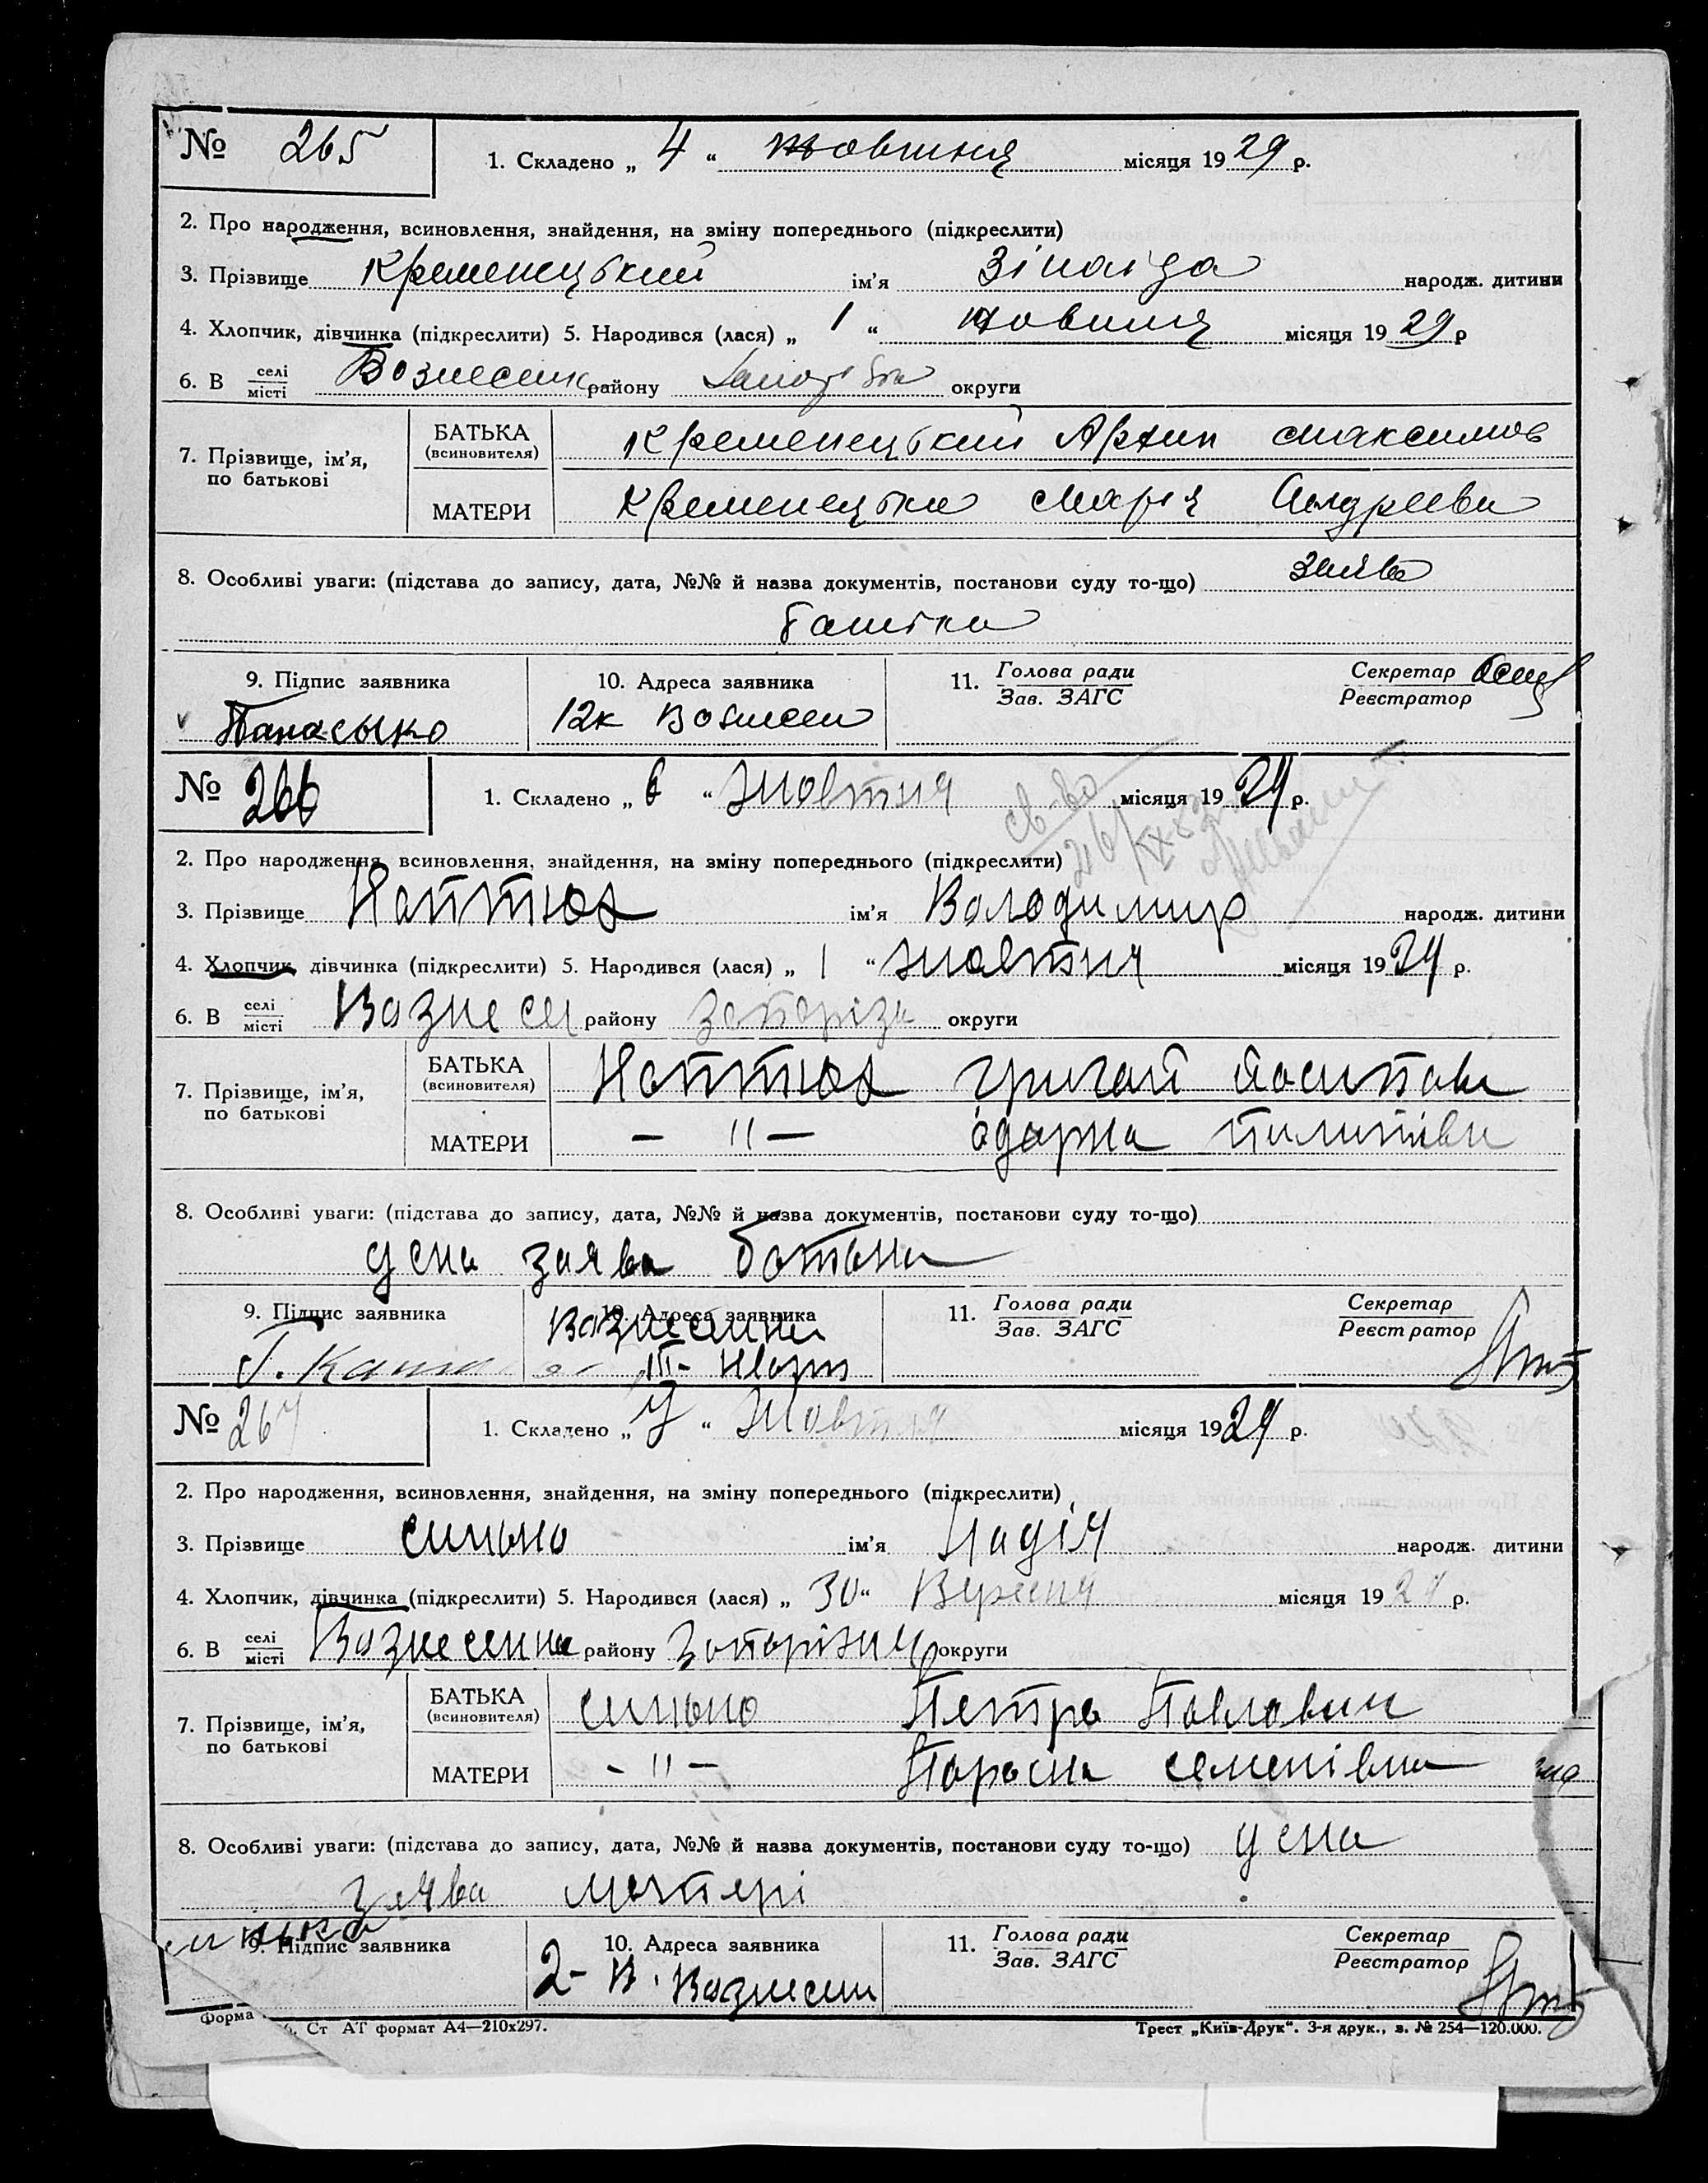 № 265 1. Складено „ 4 “ жовтня місяця 1929 р.
2. Про народження, всиновлення, знайдення, на зміну попереднього (підкреслити)
3. Прізвище Кременецький ім'я Зінаіда народж. дитини
4. Хлопчик, дівчинка (підкреслити) 5. Народився (лася) „ 1 “ жовтня місяця 1929 р
6. В селі/місті Вознесенк району округи
7. Прізвище, ім'я, по батькові
БАТЬКА (всиновителя) Кременецький Архип Максимов
МАТЕРИ Кременецька Марія Андреевн
8. Особливі уваги: (підстава до запису, дата, №№ й назва документів, постанови суду то-що) заява
батька
9. Підпис заявника 10. Адреса заявника 11. Голова ради/Зав. ЗАГС Секретар/Реєстратор
Панасько 12к Вознесен
№ 266 1. Складено „ 6 “ жовтня місяця 1929 р.
2. Про народження, всиновлення, знайдення, на зміну попереднього (підкреслити)
3. Прізвище ім'я Володимир народж. дитини
4. Хлопчик, дівчинка (підкреслити) 5. Народився (лася) „ 1 “ жовтня місяця 1929 р.
6. В селі/місті Вознесен району Запоріжж округи
7. Прізвище, ім'я, по батькові
БАТЬКА (всиновителя) Григорій Йосипов
МАТЕРИ — 〃 — Одарка Пилипівн
8. Особливі уваги: (підстава до запису, дата, №№ й назва документів, постанови суду то-що)
усна заява батька
9. Підпис заявника 10. Адреса заявника 11. Голова ради/Зав. ЗАГС Секретар/Реєстратор
Вознесенка
III- кварт
№ 267 1. Складено „ 7 “ Жовтня місяця 1929 р.
2. Про народження, всиновлення, знайдення, на зміну попереднього (підкреслити)
3. Прізвище Синько ім'я Надія народж. дитини
4. Хлопчик, дівчинка (підкреслити) 5. Народився (лася) „ 30 “ Вересня місяця 1929 р.
6. В селі/місті Вознесенка району округи
7. Прізвище, ім'я, по батькові
БАТЬКА (всиновителя) Синько Петро Павлович
МАТЕРИ - 〃 - Параска Семенівна
8. Особливі уваги: (підстава до запису, дата, №№ й назва документів, постанови суду то-що) усна
заява матері
9. Підпис заявника 10. Адреса заявника 11. Голова ради/Зав. ЗАГС Секретар/Реєстратор
2- К. Вознесен
Форма Ст АТ формат А4—210х297. Трест „Київ-Друк“. 3-я друк., з. № 254—120.000.